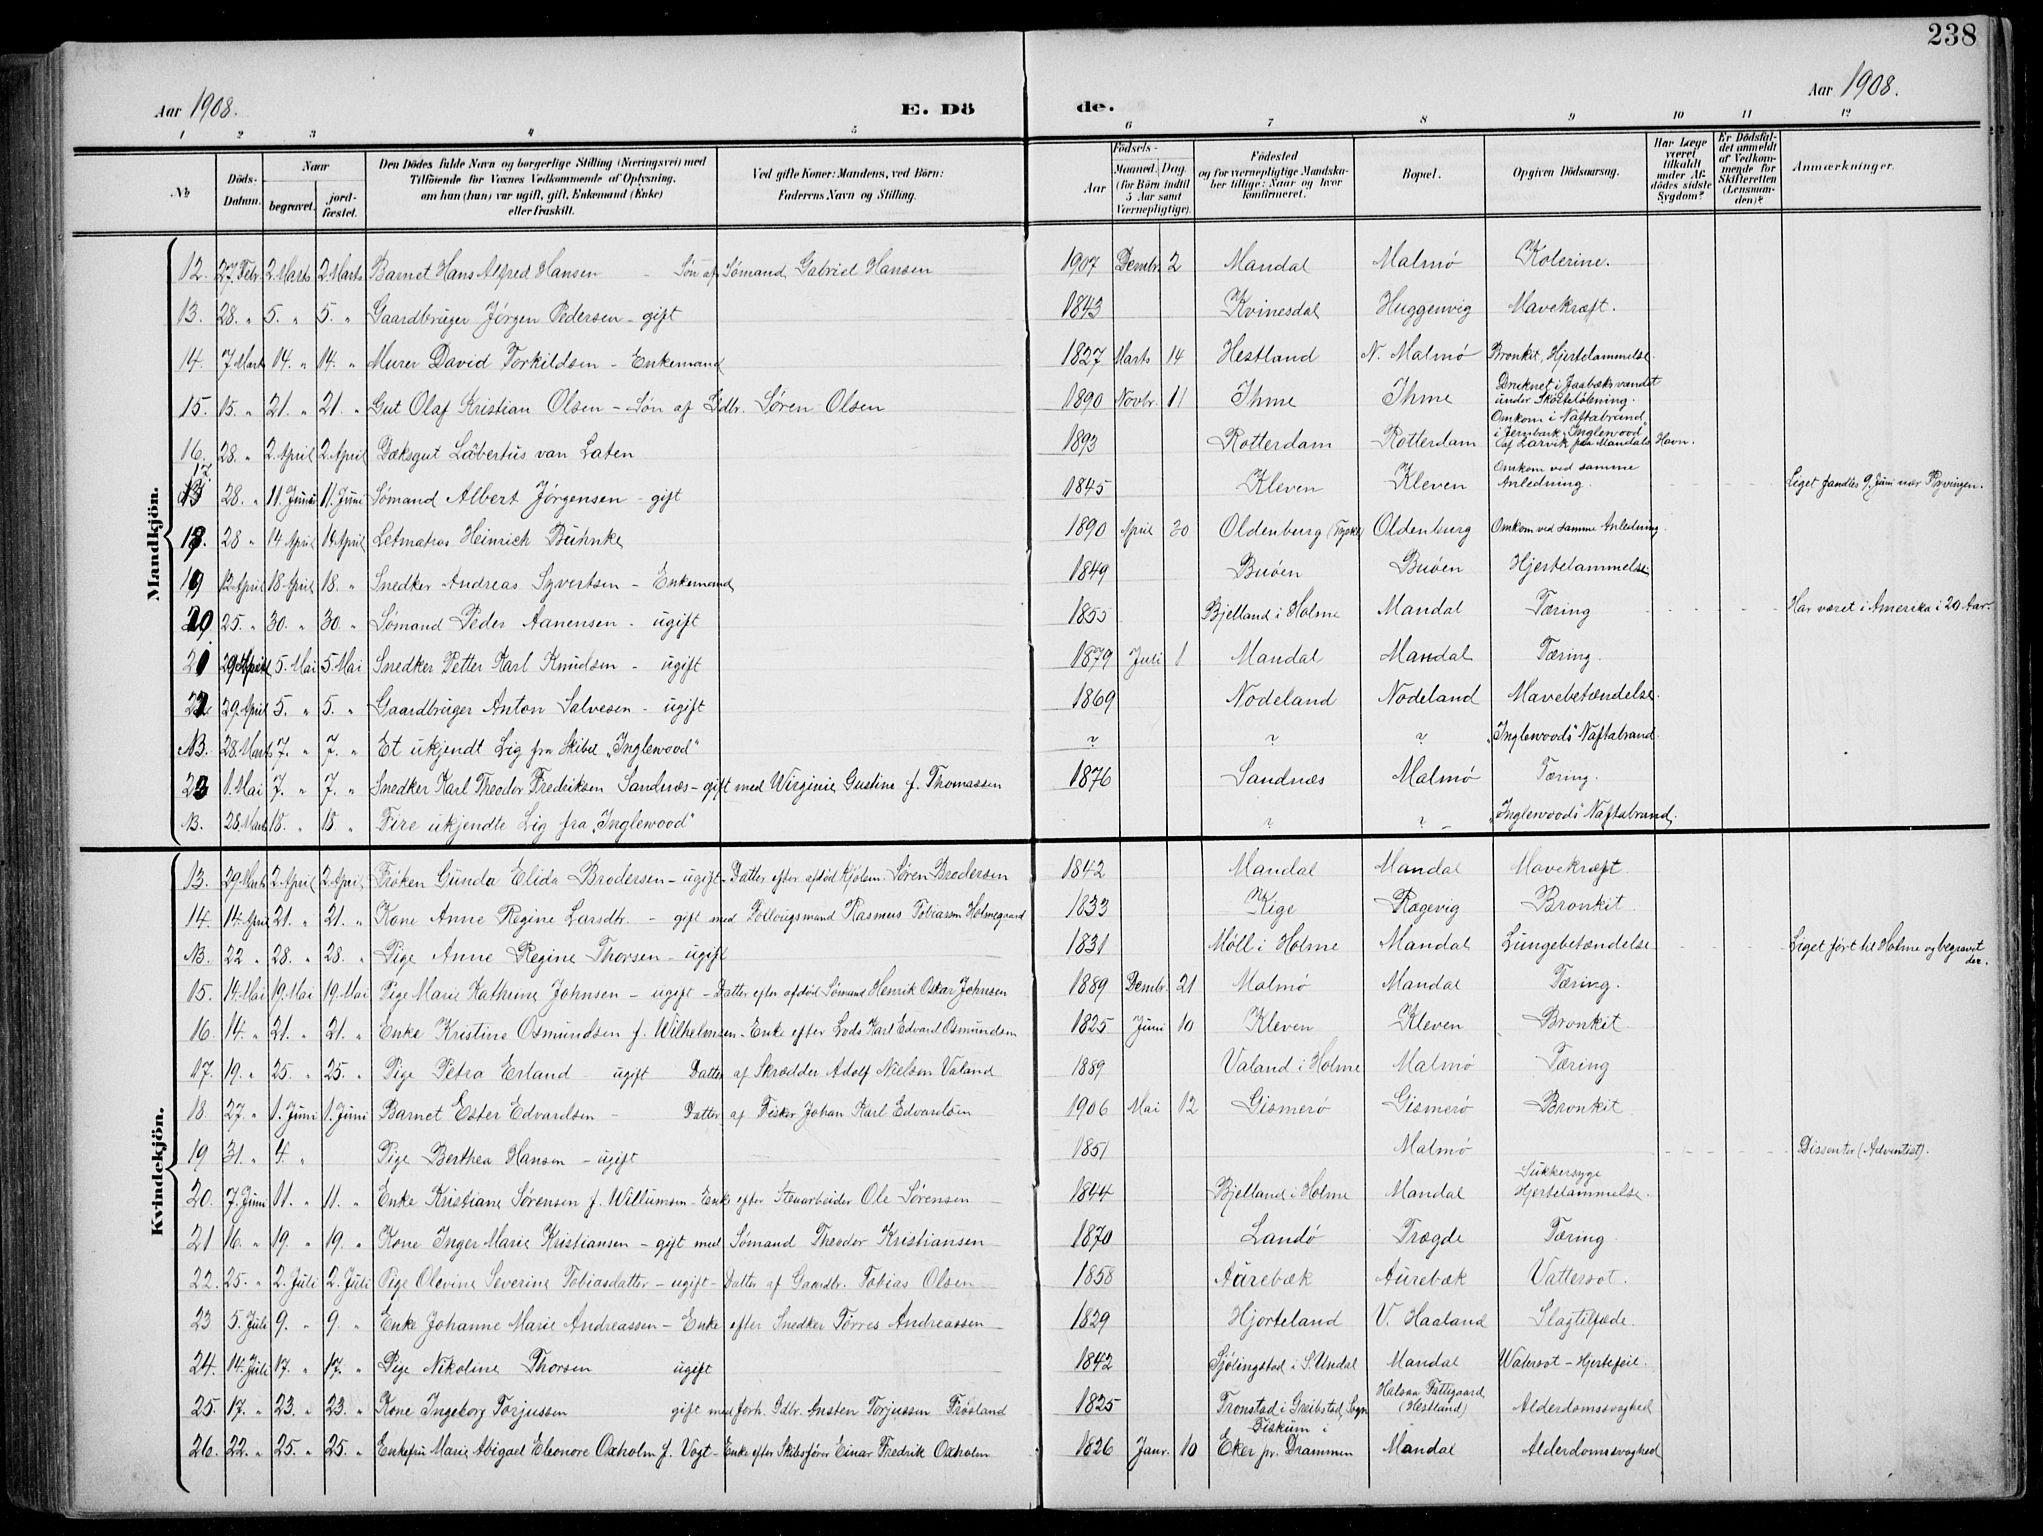 238
Aar 1908. E. Dö de. Aar 1908.
1 2 3 4 5 6 7 8 9 10 11 12
No. Döds-Datum. Naar begravet. jord-fæstet. Den Dödes fulde Navn og borgerlige Stilling (Næringsvei) med Tilföiende for Voxnes Vedkommende af Oplysning, om han (hun) var ugift, gift, Enkemand (Enke) eller fraskilt. Ved gifte Koner: Mandens, ved Börn: Faderens Navn og Stilling. Födsels- Aar Maaned. Dag. (for Börn indtil 5 Aar samt Værnepligtige). Födested og for værnepligtige Mandska-ber tillige: Naar og hvor konfirmeret. Bopæl. Opgiven Dödsaarsag. Har Læge været tilkaldt under Af-dödes sidste Sygdom? Er Dödsfal-det anmeldt af Vedkom-mende for Skifteretten (Lensman-den)? Anmærkninger.
Mandkjön.
12. 27. Febr. 2 Marts 2 Marts Barnet Hans Alfred Hansen - Søn af Sømand Gabriel Hansen 1907 Dembr. 2 Mandal Malmø Kolerine.
13. 28. " 5. " 5. " Gaardbruger Jørgen Pedersen - gift 1843 Kvinesdal Huggenvig Mavekræft.
14. 7 Mart 14. " 14. " Murer David Torkildsen - Enkemand 1827 Marts 14 Hestland N. Malmø Bronkit, Hjertelammelse.
15. 15. " 21. " 21. " Gut Olaf Kristian Olsen - Søn af Gdbr. Søren Olsen 1890 Novbr. 11 Ihme Ihme Druknet i Jaabæksvandet under Skøiteløbning.
16. 28. " 2 April 2 April Dæksgut Labertus van Laten 1893 Rotterdam Rotterdam Omkom i Naftabrand i Jernbark "Inglewood" af Larvik paa Mandals Havn.
17 28. " 11. Juni 11. Juni Sømand Albert Jørgensen - gift 1845 Kleven Kleven Omkom ved samme Anledning. Liget fandtes 9. Juni nær Ryvingen.
18. 28 " 14 April 14 April Letmatros Heinrich Buhnke 1890 April 30 Oldenburg (Tyskl) Oldenburg Omkom ved samme Anledning.
19 12 April 18 April 18. " Snedker Andreas Syvertsen - Enkemand 1849 Buøen Buøen Hjertelammelse
20. 25. " 30. " 30 " Sømand Peder Aanensen - ugift 1855 Bjelland i Holme Mandal Tæring Har været i Amerika i 20 Aar.
21 29 April 5. Mai 5 Mai Snedker Petter Karl Knudsen - ugift 1879 Juli 1 Mandal Mandal Tæring.
22 29. April 5. " 5. " Gaardbruger Anton Salvesen - ugift 1869 Nodeland Nodeland Mavebetændelse.
NB. 28. Mart 7. " 7. " Et ukjendt Lig fra Skibet "Inglewood" ? ? ? "Inglewoods" Naftabrand.
23 1. Mai 7. " 7. " Snedker Karl Theodor Fredriksen Sandnæs - gift med Wirginie Gustine f. Thomassen 1876 Sandnæs Malmø Tæring.
NB. 28. Mart 18. " 18. " Fire ukjendte Lig fra "Inglewood" ? ? "Inglewoods" Naftabrand.
Kvindekjön.
13. 29. Marts 2 April 2 April Frøken Gunda Elida Brodersen - ugift - Datter efter afdød Kjølem. Søren Brodersen 1842 Mandal Mandal Mavekræft.
14. 14. April 21. " 21. " Kone Anne Regine Larsdtr. - gift med Follougsmand Rasmus Tobiassen Holmegaard 1833 Kige Røgevig Bronkit.
NB. 22 " 28. " 28. " Pige Anne Regine Thorsen - ugift 1831 Møll i Holme Mandal Lungebetændelse Liget ført til Holme og begravet der.
15. 14. Mai 19. Mai 19. Mai Pige Marie Kathrine Johnsen - ugift - Datter efter afdød Sømand Henrik Oskar Johnsen 1889 Dembr. 21 Malmø Mandal Tæring.
16. 14. " 21. " 21. " Enke Kristine Osmundsen f. Wilhelmsen - Enke efter Lods Karl Edvard Osmundsen 1825 Juni 10 Kleven Kleven Bronkit.
17. 19. " 25. " 25. " Pige Petra Erland - ugift Datter af Skrædder Adolf Nielsen Valand 1889 Valand i Holme Malmø Tæring
18. 27. " 1. Juni 1. Juni Barnet Ester Edvardsen - Datter af Fisker Johan Karl Edvardsen 1906 Mai 12 Gismerø Gismerø Bronkit
19 31. " 4. " Pige Berthea Hansen - ugift 1851 Malmø Dissenter (Adventist).
20. 7. Juni 11. " 11. " Enke Kristiane Sørensen f. Willumsen - Enke efter Stenarbeider Ole Sørensen 1844 Bjelland i Holme Mandal Sukkersyge Hjertelammelse.
21 16. " 19. " 19. " Kone Inger Marie Kristiansen - gift med Sømand Theodor Kristiansen 1870 Landø Trægde Tæring
22. 25. " 2. Juli 2. Juli Pige Olevine Severine Tobiasdatter - ugift - Datter af Gaardbr. Tobias Olsen 1858 Aurebæk Aurebæk Vattersot.
23 5. Juli 9. " 9. " Enke Johanne Marie Andreassen - Enke efter Snedker Tørres Andreassen 1829 Hjorteland V. Haaland Slagtilfæde.
24. 14. Juli 17. " 17. " Pige Nikoline Thorsen ugift 1842 Sjølingstad i S. Undal Mandal Watersot - Hjertefeil.
25. 17. " 23. " 23. " Kone Ingeborg Torjussen gift med forh. Gdbr. Ansten Torjussen Frøsland 1825 Tronstad i Greibstad Sogn Halsaa Fattiggaard (Hestland) Alderdomssvaghed
26. 22. " 25. " 25. " Enkefru Marie Abigael Eleonore Oxholm f. Vogt - Enke efter Skibsfører Einar Fredrik Oxholm 1826 Janr. 10 Fiskum i Eker pr. Drammen Mandal Alderdomssvaghed